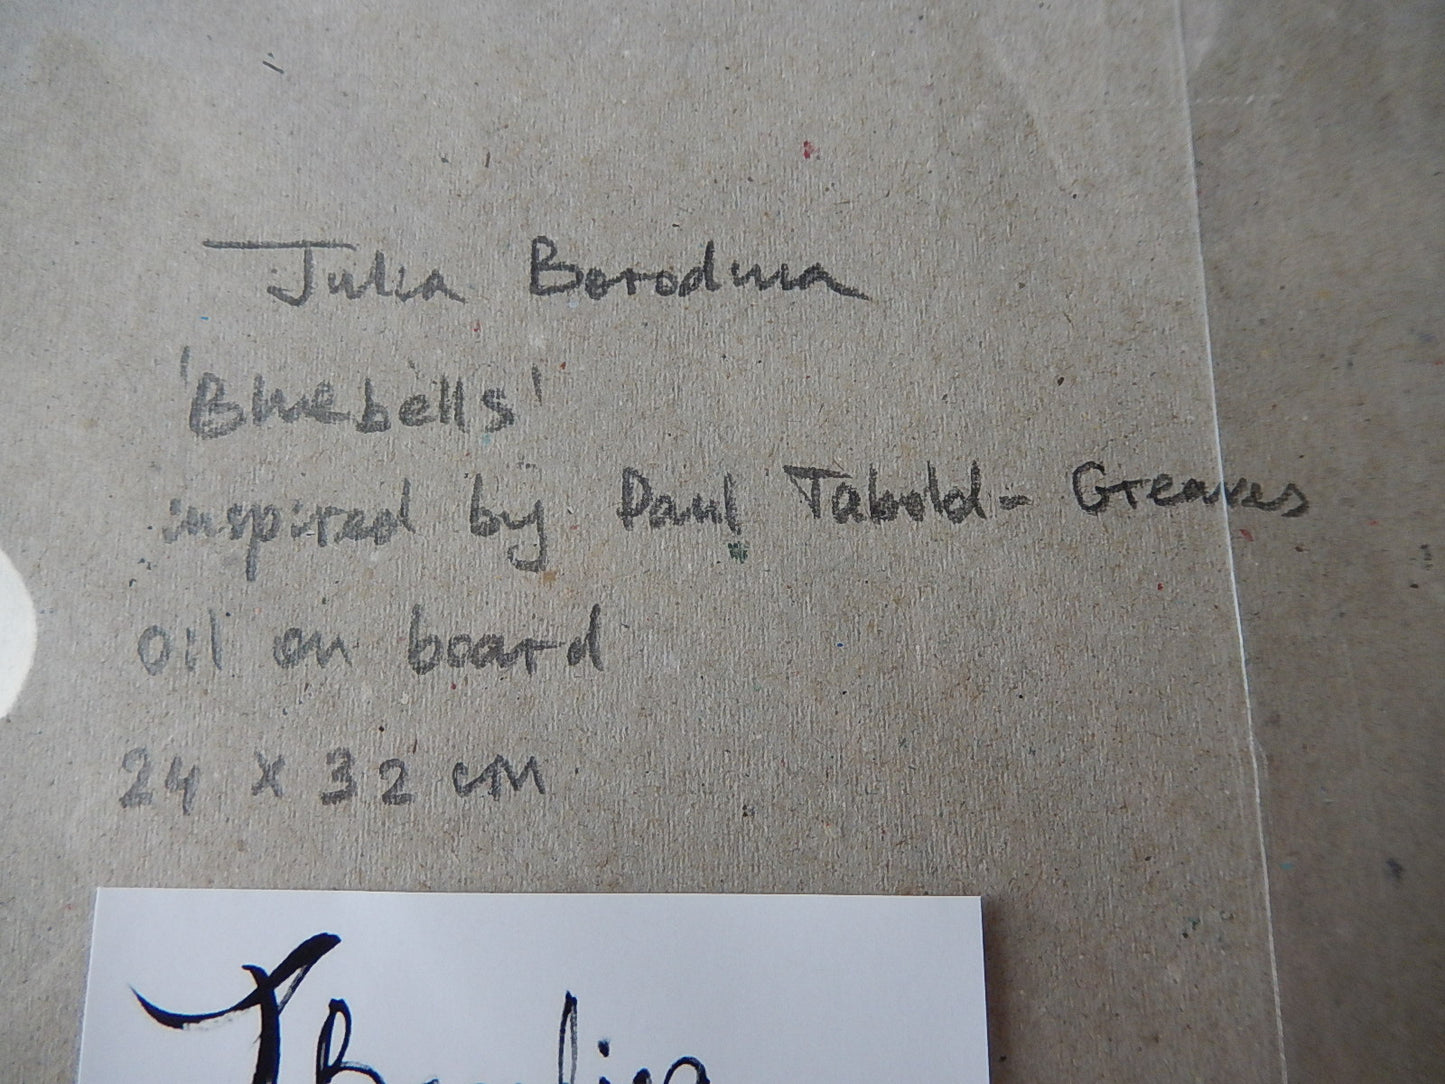 Julia Borodina
'Bluebells'
inspired by Paul Tabold- Greaves
oil on board
24 x 32 cm